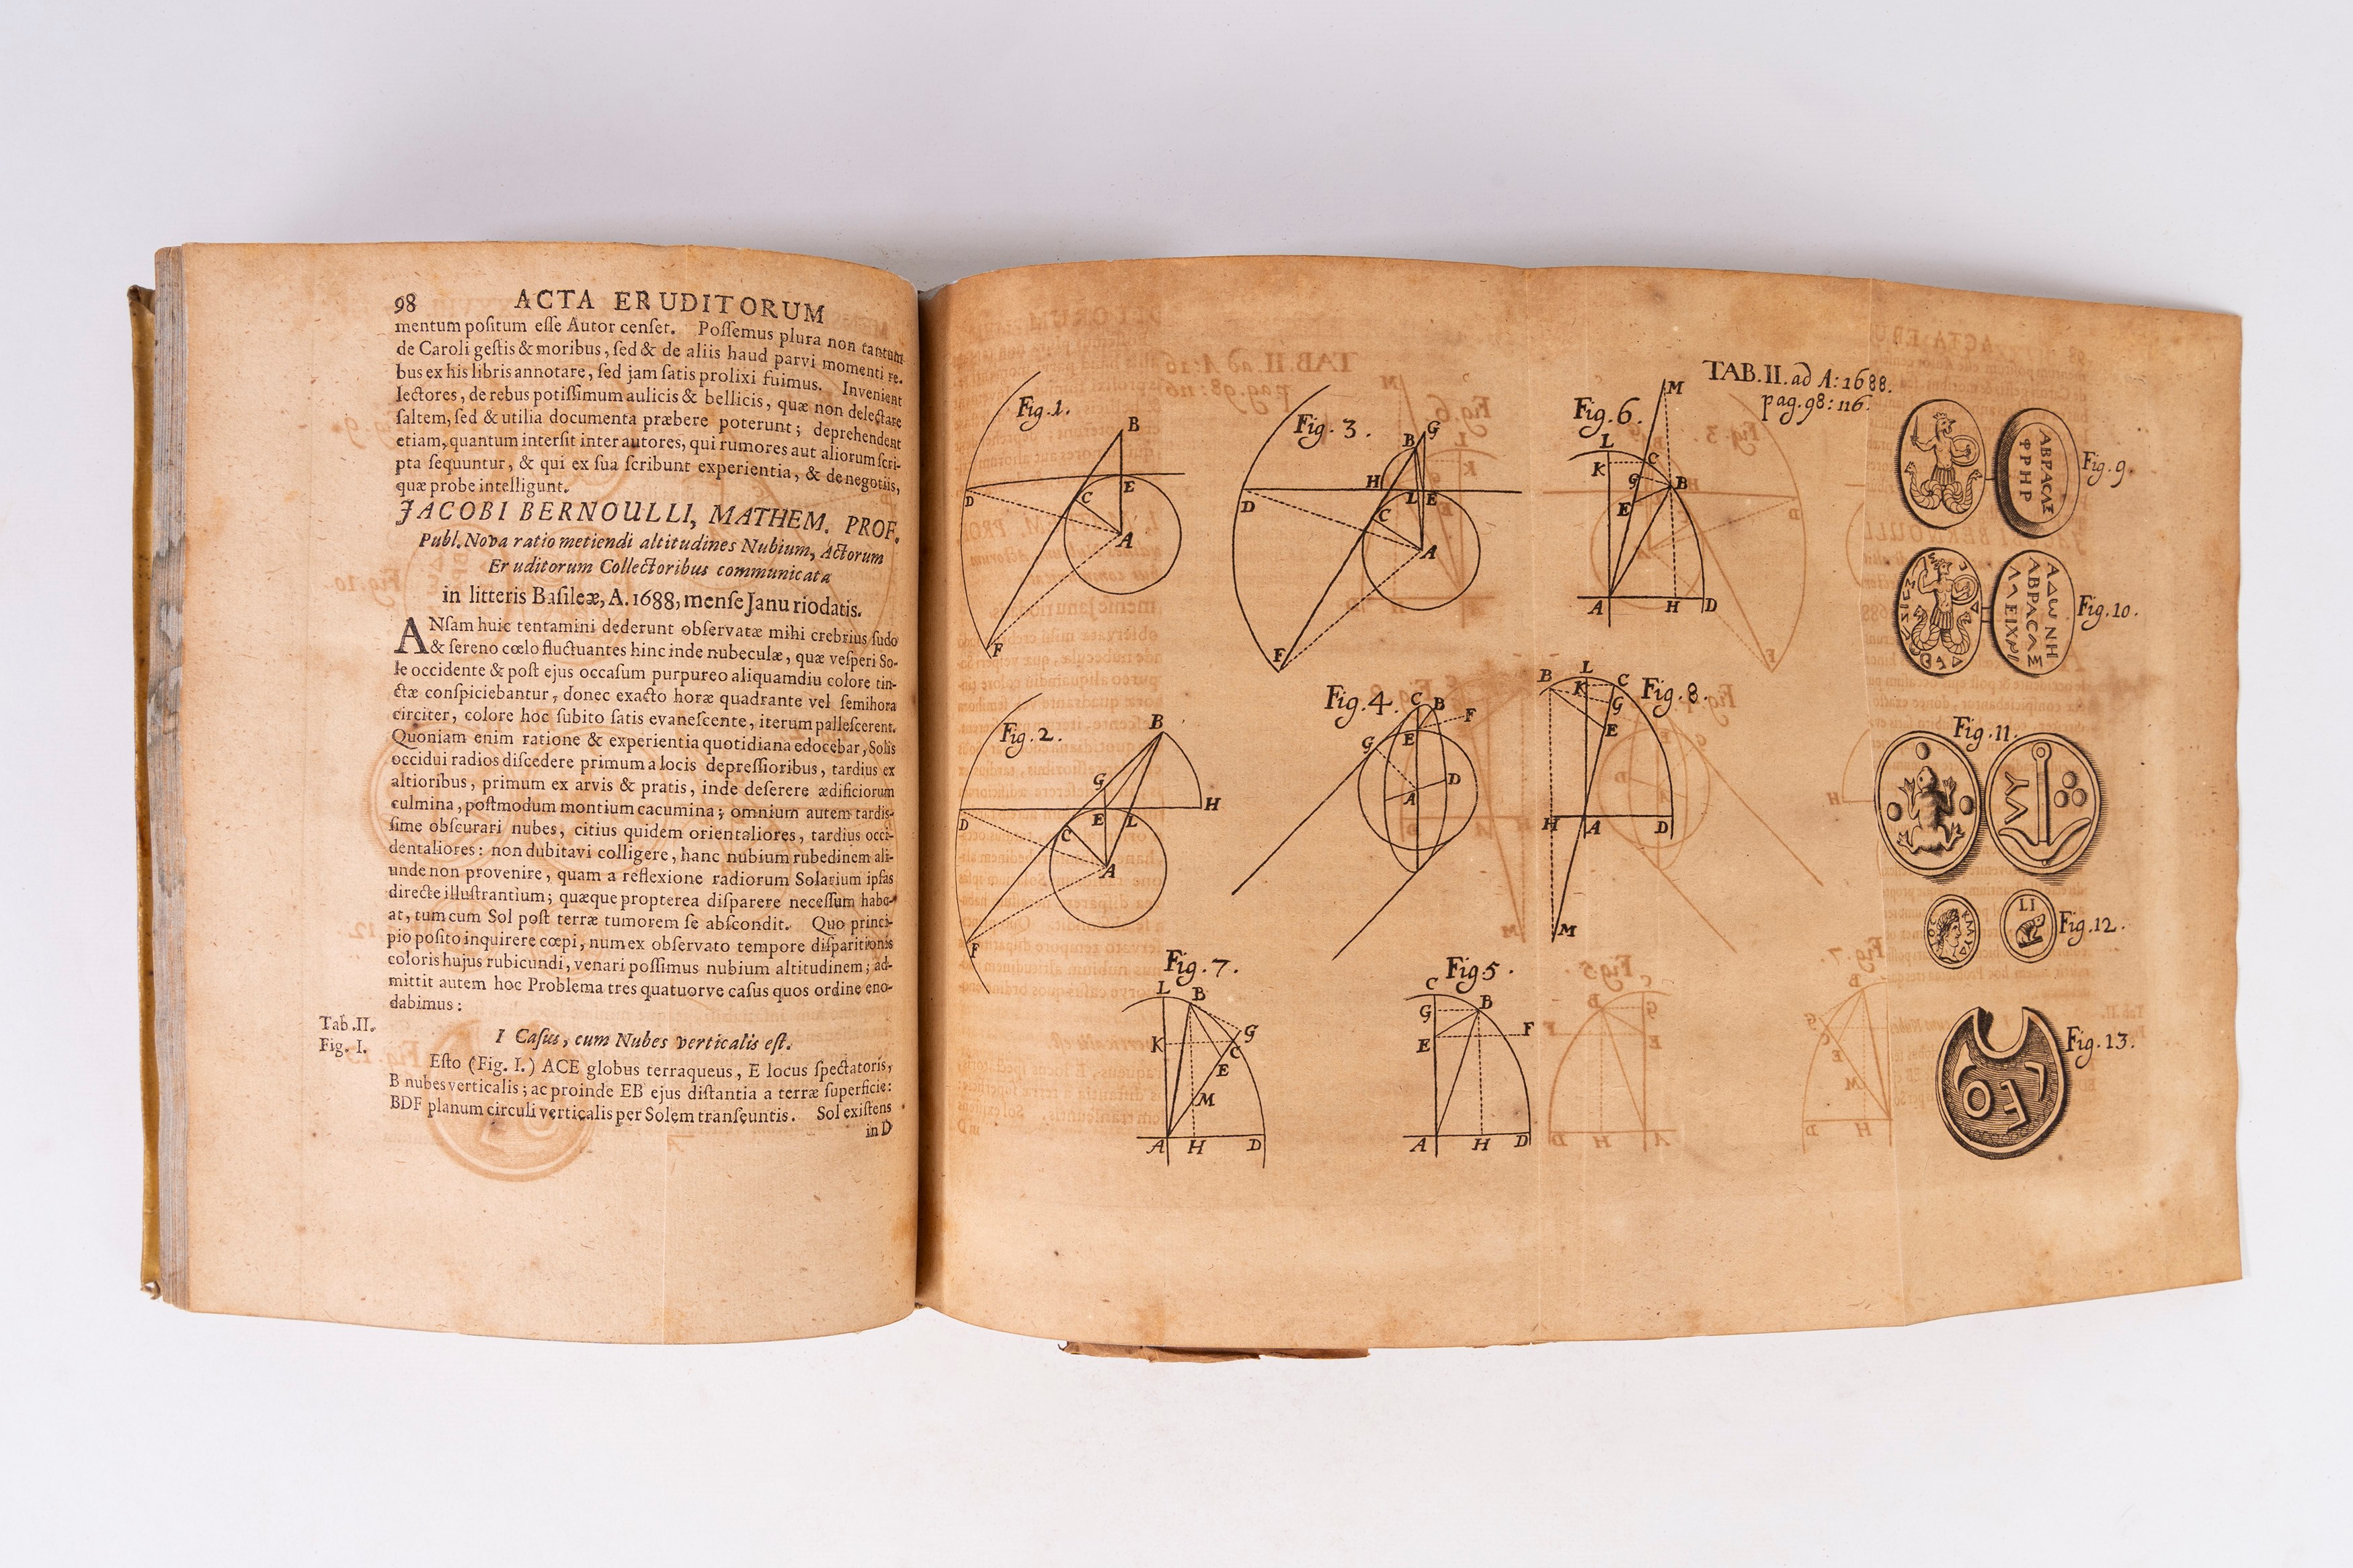 98 ACTA ERUDITORUM
mentum positum esse Autor censet. Possemus plura non tantum
de Caroli gestis & moribus, sed & de aliis haud parvi momenti re-
bus ex his libris annotare, sed jam satis prolixi fuimus. Invenient
lectores, de rebus potissimum aulicis & bellicis, quæ non delectare
saltem, sed & utilia documenta præbere poterunt; deprehendent
etiam, quantum intersit inter autores, qui rumores aut aliorum scri-
pta sequuntur, & qui ex sua scribunt experientia, & de negotiis,
quæ probe intelligunt.
JACOBI BERNOULLI, MATHEM. PROF.
Publ. Nova ratio metiendi altitudines Nubium, Actorum
Eruditorum Collectoribus communicata
in litteris Basileæ, A. 1688, mense Januario datis.
ANsam huic tentamini dederunt observatæ mihi crebrius sudo
& sereno cœlo fluctuantes hinc inde nubeculæ, quæ vesperi So-
le occidente & post ejus occasum purpureo aliquamdiu colore tin-
ctæ conspiciebantur, donec exacto horæ quadrante vel semihora
circiter, colore hoc subito satis evanescente, iterum pallescerent.
Quoniam enim ratione & experientia quotidiana edocebar, Solis
occidui radios discedere primum a locis depressioribus, tardius ex
altioribus, primum ex arvis & pratis, inde deserere ædificiorum
culmina, postmodum montium cacumina; omnium autem tardis-
sime obscurari nubes, citius quidem orientaliores, tardius occi-
dentaliores: non dubitavi colligere, hanc nubium rubedinem ali-
unde non provenire, quam a reflexione radiorum Solarium ipsas
directe illustrantium; quæque propterea disparere necessum habe-
at, tum cum Sol post terræ tumorem se abscondit. Quo princi-
pio posito inquirere cœpi, num ex observato tempore disparitionis
coloris hujus rubicundi, venari possimus nubium altitudinem; ad-
mittit autem hoc Problema tres quatuorve casus quos ordine eno-
dabimus:
Tab. II.
Fig. I.
I Casus, cum Nubes verticalis est.
Esto (Fig. I.) ACE globus terraqueus, E locus spectatoris,
B nubes verticalis; ac proinde EB ejus distantia a terræ superficie:
BDF planum circuli verticalis per Solem transeuntis. Sol existens
in D
TAB. II. ad A: 1688.
pag. 98: 116.
Fig. 1.
B
D
C
E
A
F
Fig. 3.
B
G
H
D
L
E
C
A
F
Fig. 6.
M
L
K
C
G
B
E
A
H
D
Fig. 9.
ΑΒΡΑCΑΣ
ΦΡΗΡ
Fig. 10.
ΑΔΩΝΗ
ΑΒΡΑCΑΣ
Fig. 2.
B
G
H
D
E
L
C
A
F
Fig. 4.
C
B
F
G
E
D
A
Fig. 8.
B
L
K
C
G
E
H
A
D
M
Fig. 11.
Fig. 12.
LI
Fig. 7.
L
B
G
K
C
E
M
A
H
D
Fig. 5.
C
B
G
F
E
A
H
D
Fig. 13.